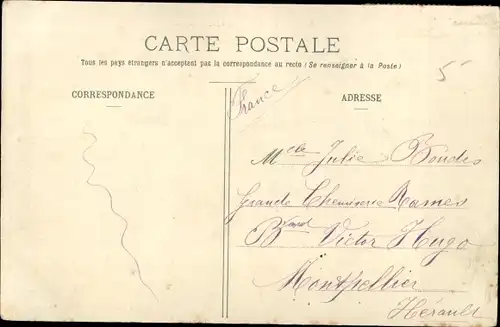 CARTE POSTALE
Tous les pays étrangers n'acceptent pas la correspondance au recto (Se renseigner à la Poste)
5
CORRESPONDANCE
France
ADRESSE
Mlle Julie
Grande Chemiserie Rames
Bvard Victor Hugo
Montpellier
Hérault